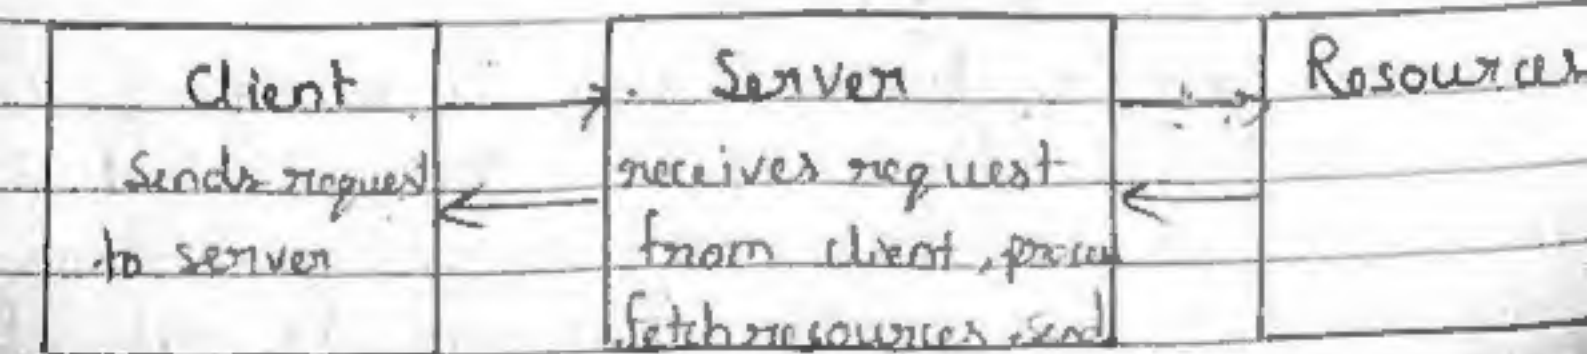 Client
Sends request
to server
Server
receives request
from client,
fetch resources, send
Resources